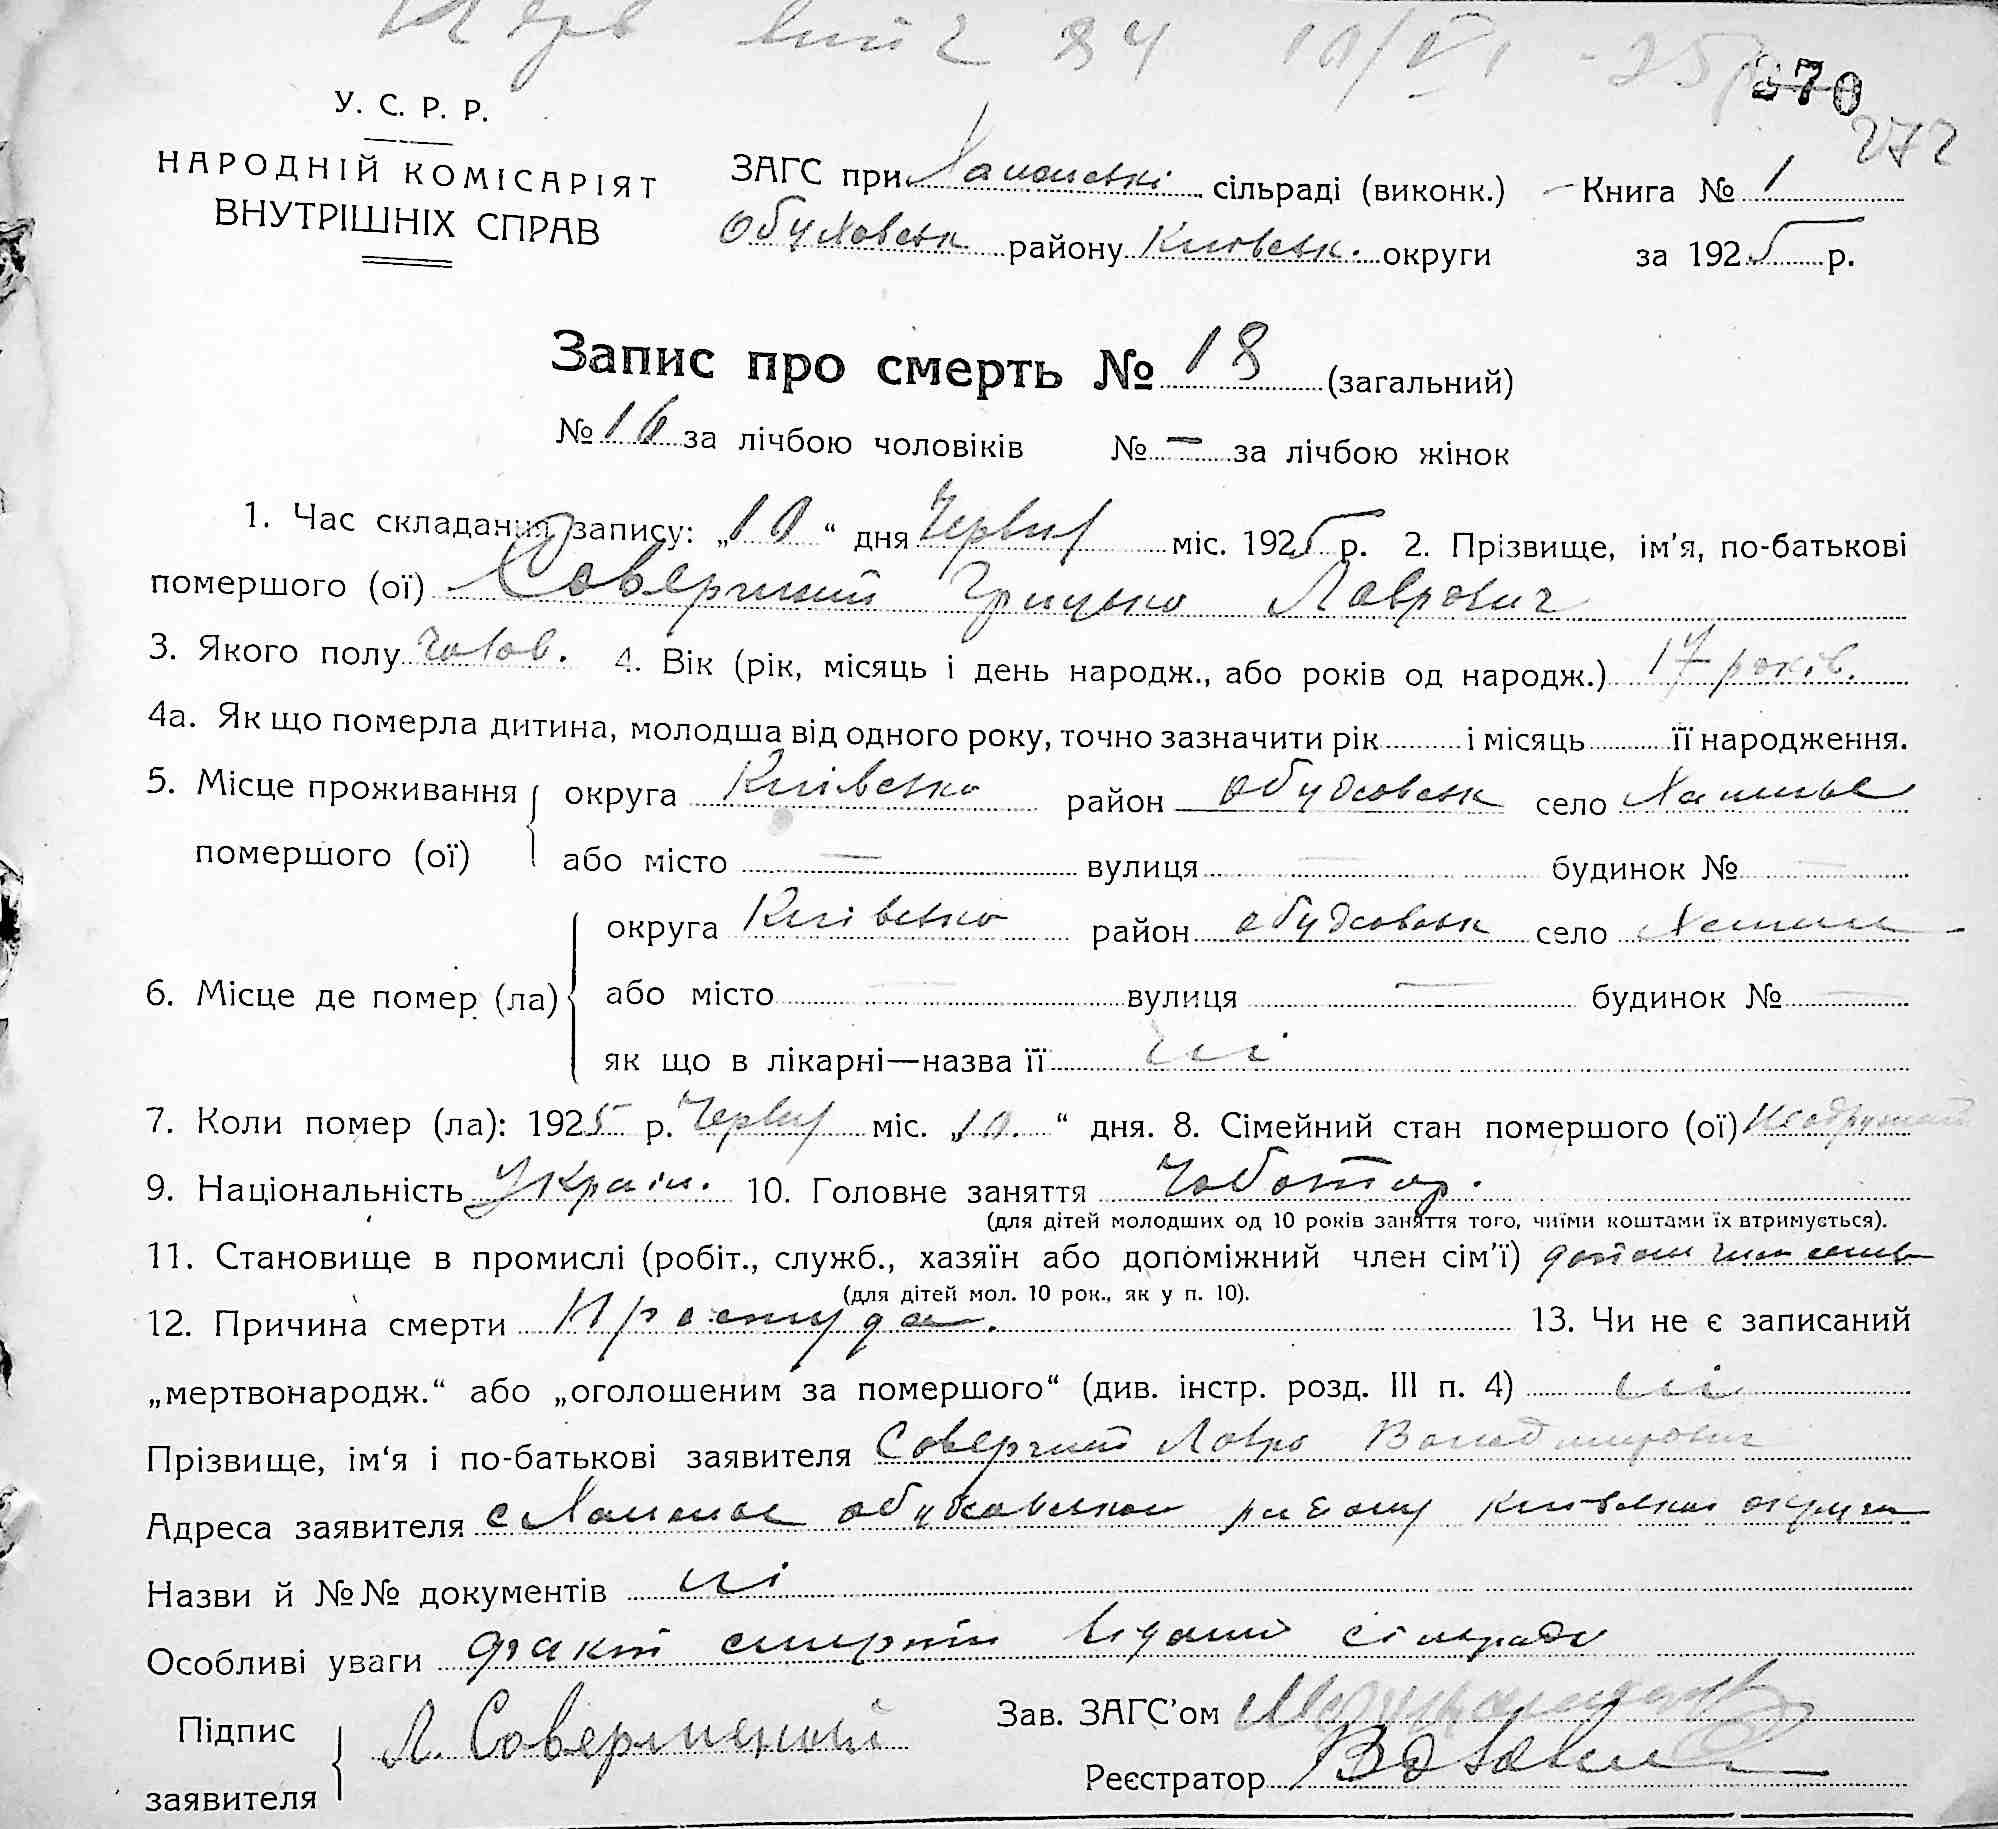 84 10/VI - 25
370
272
У. С. Р. Р.
НАРОДНІЙ КОМІСАРІЯТ
ВНУТРІШНІХ СПРАВ
ЗАГС при сільраді (виконк.) Книга № 1
Обуховськ району Киівськ. округи за 1925 р.
Запис про смерть № 18 (загальний)
№ 16 за лічбою чоловіків № — за лічбою жінок
1. Час складання запису: „10“ дня Червня міс. 1925 р. 2. Прізвище, ім'я, по-батькові
помершого (ої) Грицько Лаврович
3. Якого полу чолов. 4. Вік (рік, місяць і день народж., або років од народж.) 17 років.
4а. Як що померла дитина, молодша від одного року, точно зазначити рік і місяць її народження.
5. Місце проживання округа Київсько район Обуховськ село
помершого (ої) або місто — вулиця — будинок № —
округа Київсько район Обуховськ село
6. Місце де помер (ла) або місто — вулиця — будинок № —
як що в лікарні—назва її ні
7. Коли помер (ла): 1925 р. Червня міс. „10“ дня. 8. Сімейний стан помершого (ої)
9. Національність Україн. 10. Головне заняття Чоботар.
(для дітей молодших од 10 років заняття того, чиїми коштами їх втримується).
11. Становище в промислі (робіт., служб., хазяїн або допоміжний член сім'ї) допом член
(для дітей мол. 10 рок., як у п. 10).
12. Причина смерти Простуда. 13. Чи не є записаний
„мертвонародж.“ або „оголошеним за помершого“ (див. інстр. розд. III п. 4) ні
Прізвище, ім'я і по-батькові заявителя Лавро
Адреса заявителя с району округи
Назви й №№ документів ні
Особливі уваги факт смерти сільради
Підпис
заявителя Л.
Зав. ЗАГС'ом
Реєстратор